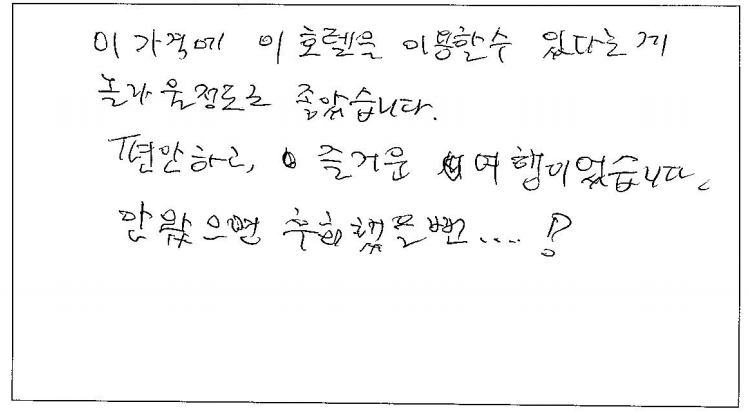 이 가격에 이 호텔을 이용할수 있다는게
놀라울정도로 좋았습니다.
편안하고, 즐거운 여행이었습니다.
안왔으면 후회했을뻔....!